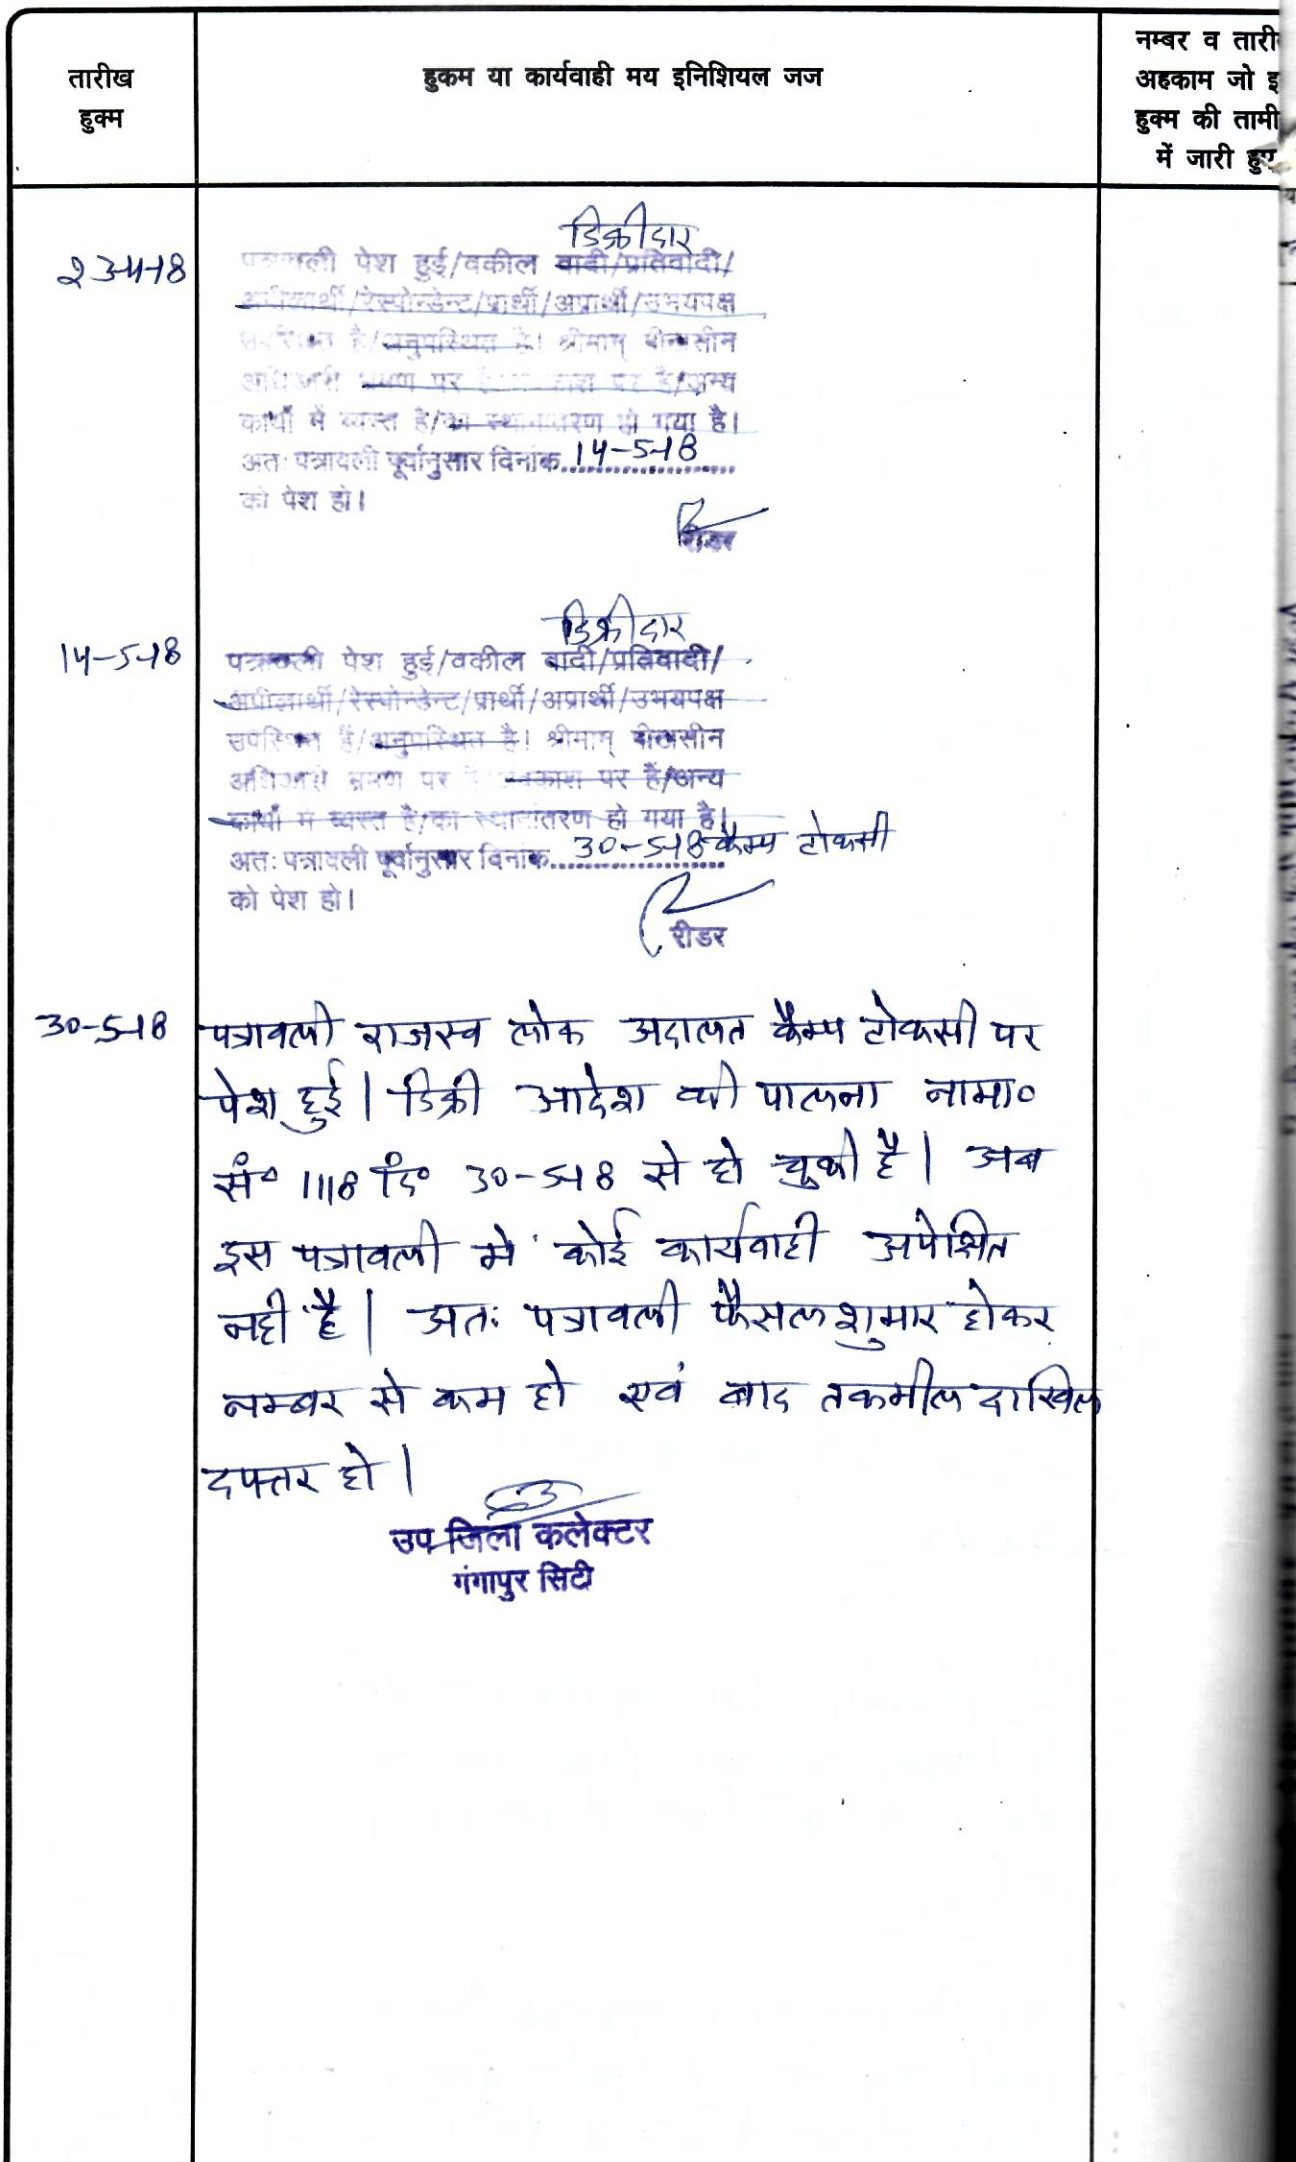 तारीख
हुक्म
हुकम या कार्यवाही मय इनिशियल जज
नम्बर व तारी
अहकाम जो इ
हुक्म की तामी
में जारी हुए
डिक्रीदार
23-4-18
पत्रावली पेश हुई/वकील वादी/प्रतिवादी/
अपीलार्थी/रेस्पोन्डेन्ट/प्रार्थी/अप्रार्थी/उभयपक्ष
उपस्थित है/अनुपस्थित है। श्रीमान् पीठासीन
अधिकारी भ्रमण पर है/अवकाश पर है/अन्य
कार्यों में व्यस्त है/का स्थानांतरण हो गया है।
अतः पत्रावली पूर्वानुसार दिनांक 14-5-18
को पेश हो।
रीडर
डिक्रीदार
14-5-18
पत्रावली पेश हुई/वकील वादी/प्रतिवादी/
अपीलार्थी/रेस्पोन्डेन्ट/प्रार्थी/अप्रार्थी/उभयपक्ष
उपस्थित है/अनुपस्थित है। श्रीमान् पीठासीन
अधिकारी भ्रमण पर है/अवकाश पर है/अन्य
कार्यों में व्यस्त है/का स्थानांतरण हो गया है।
अतः पत्रावली पूर्वानुसार दिनांक 30-5-18 कैम्प टोकसी
को पेश हो।
रीडर
30-5-18
पत्रावली राजस्व लोक अदालत कैम्प टोकसी पर
पेश हुई। डिक्री आदेश की पालना नामा०
सं० 1118 दि० 30-5-18 से हो चुकी है। अब
इस पत्रावली मे कोई कार्यवाही अपेक्षित
नही है। अतः पत्रावली फैसल शुमार होकर
नम्बर से कम हो एवं बाद तकमील दाखिल
दफ्तर हो।
उप जिला कलेक्टर
गंगापुर सिटी